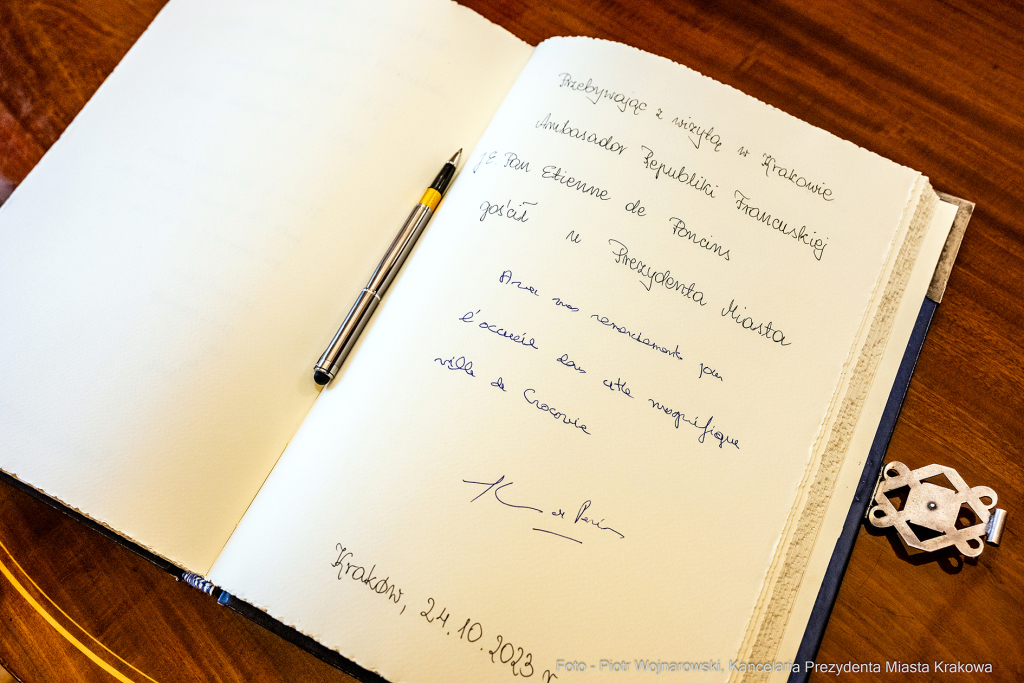 Przebywając z wizytą w Krakowie
Ambasador Republiki Francuskiej
J.E. Pan Etienne de Poncins
gościł u Prezydenta Miasta
Avec mes remerciements pour
l'accueil dans cette magnifique
ville de Cracovie
de
Kraków, 24.10.2023 r
Foto - Piotr Wojnarowski, Kancelaria Prezydenta Miasta Krakowa